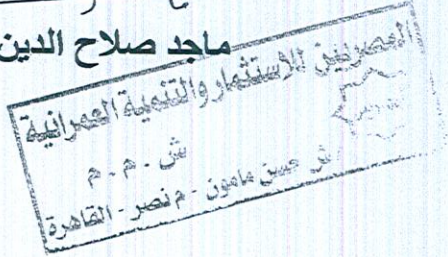 ماجد صلاح الدين
المصريين للاستثمار والتنمية العمرانية
ش . م . م
ش حسن مامون - م نصر - القاهرة